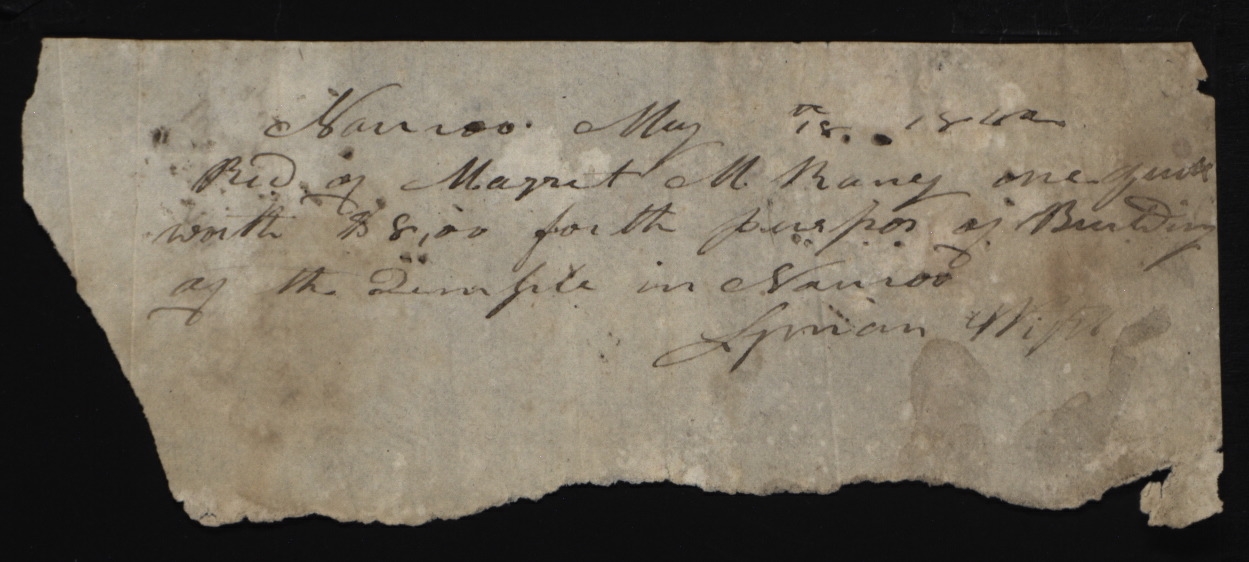 Nauvoo May 18th 1842
Recd of Magret M Raney one quilt
worth $8,00 for th purpos of Building
of the Temple in Nauvoo
Lyman Wight